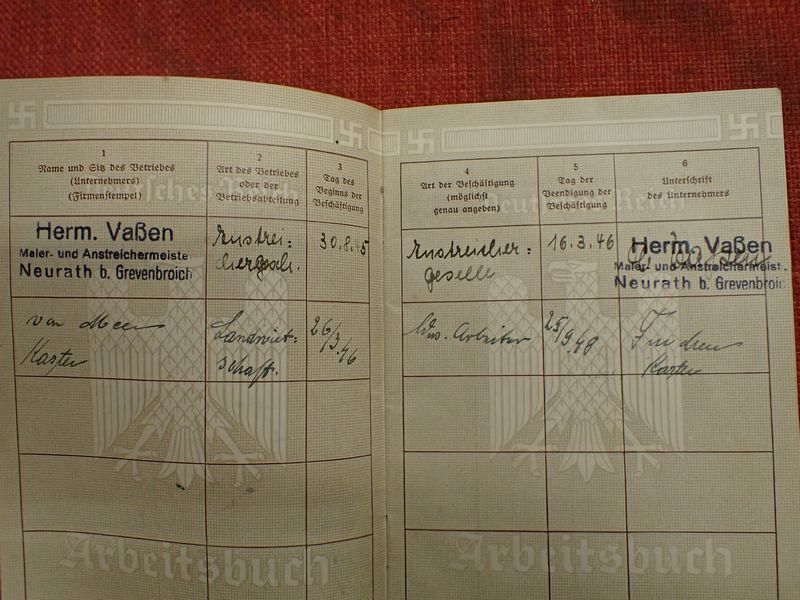 1
Name und Sitz des Betriebes
(Unternehmers)
(Firmenstempel)
2
Art des Betriebes
oder der
Betriebsabteilung
3
Tag des
Beginns der
Beschäftigung
Herm. Vaßen
Maler- und Anstreichermeiste
Neurath b. Grevenbroich
Anstrei=
30.8.45
van
Kaster
Landwirt=
schaft.
26/3.46
Arbeitsbuch
4
Art der Beschäftigung
(möglichst
genau angeben)
5
Tag der
Beendigung der
Beschäftigung
6
Unterschrift
des Unternehmers
Deutsches Reich
Anstreicher=
geselle
16.3.46
Herm. Vaßen
Maler- und Anstreichermeist.
Neurath b. Grevenbroic
Arbeiter
25/9.48
Kaster
Arbeitsbuch